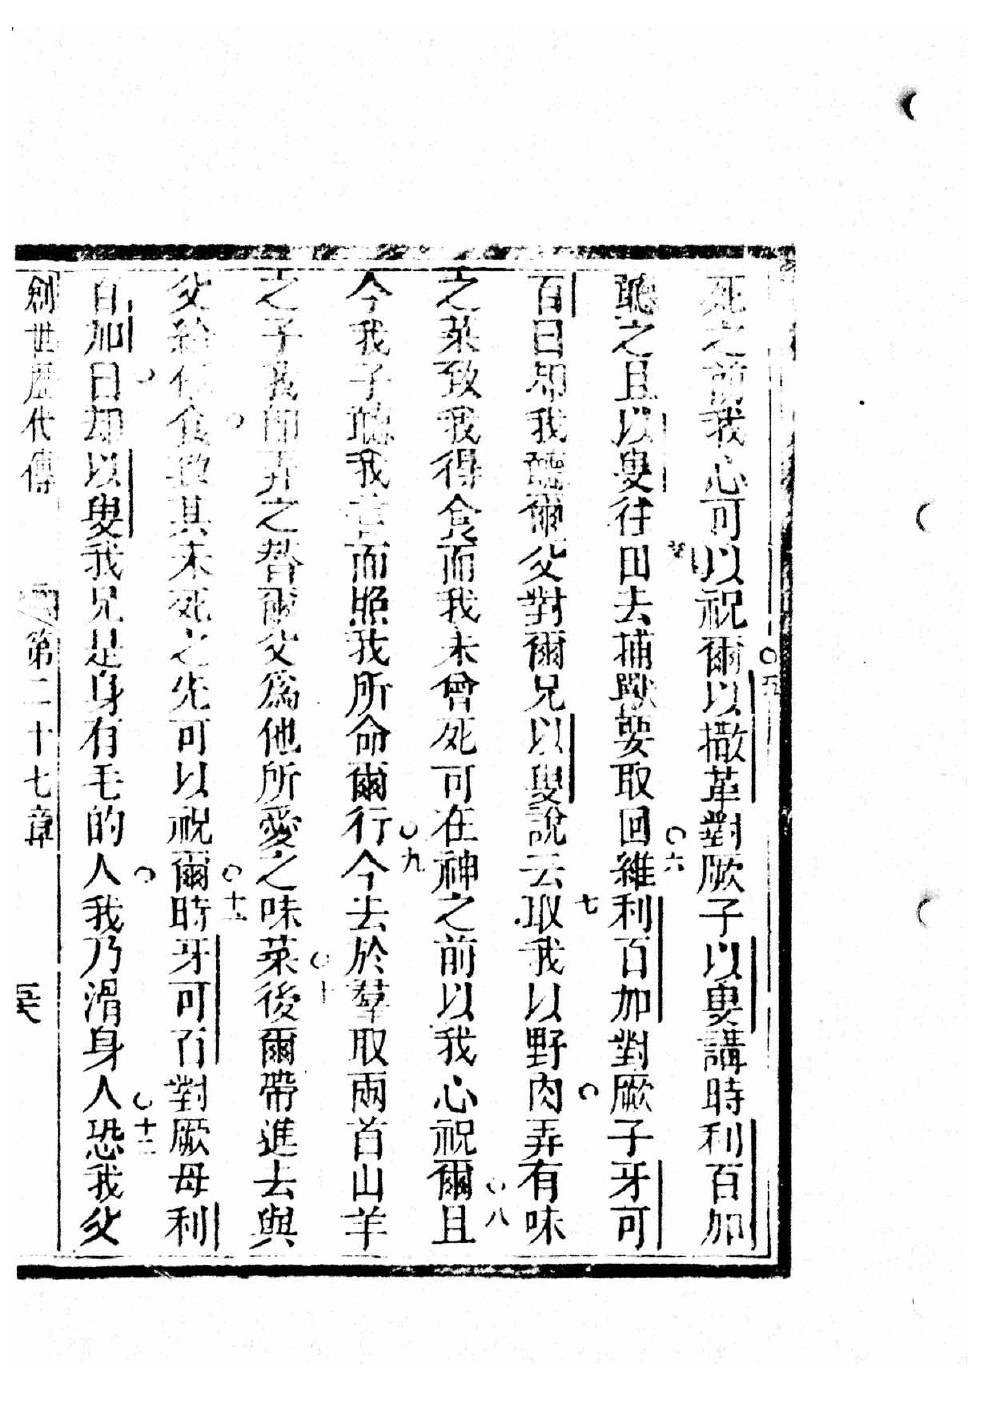 死之前我心可以祝爾○五以撒革對厥子以叟講時利百加
聽之且以叟往田去捕獸要取回維○六利百加對厥子牙可
百曰却我聽爾父對爾兄以叟說云七取我以野肉弄有味
之菜致我得食而我未曾死可在神之前以我心祝爾○八且
今我子聽我言而照我所命爾行○九今去於羣取兩首山羊
之子我即弄之替爾父爲他所愛之味菜○十後爾帶進去與
父給他食致其未死之先可以祝爾○十一時牙可百對厥母利
百加曰却以叟我兄是身有毛的人我乃滑身人○十二恐我父
創世歷代傳 第二十七章